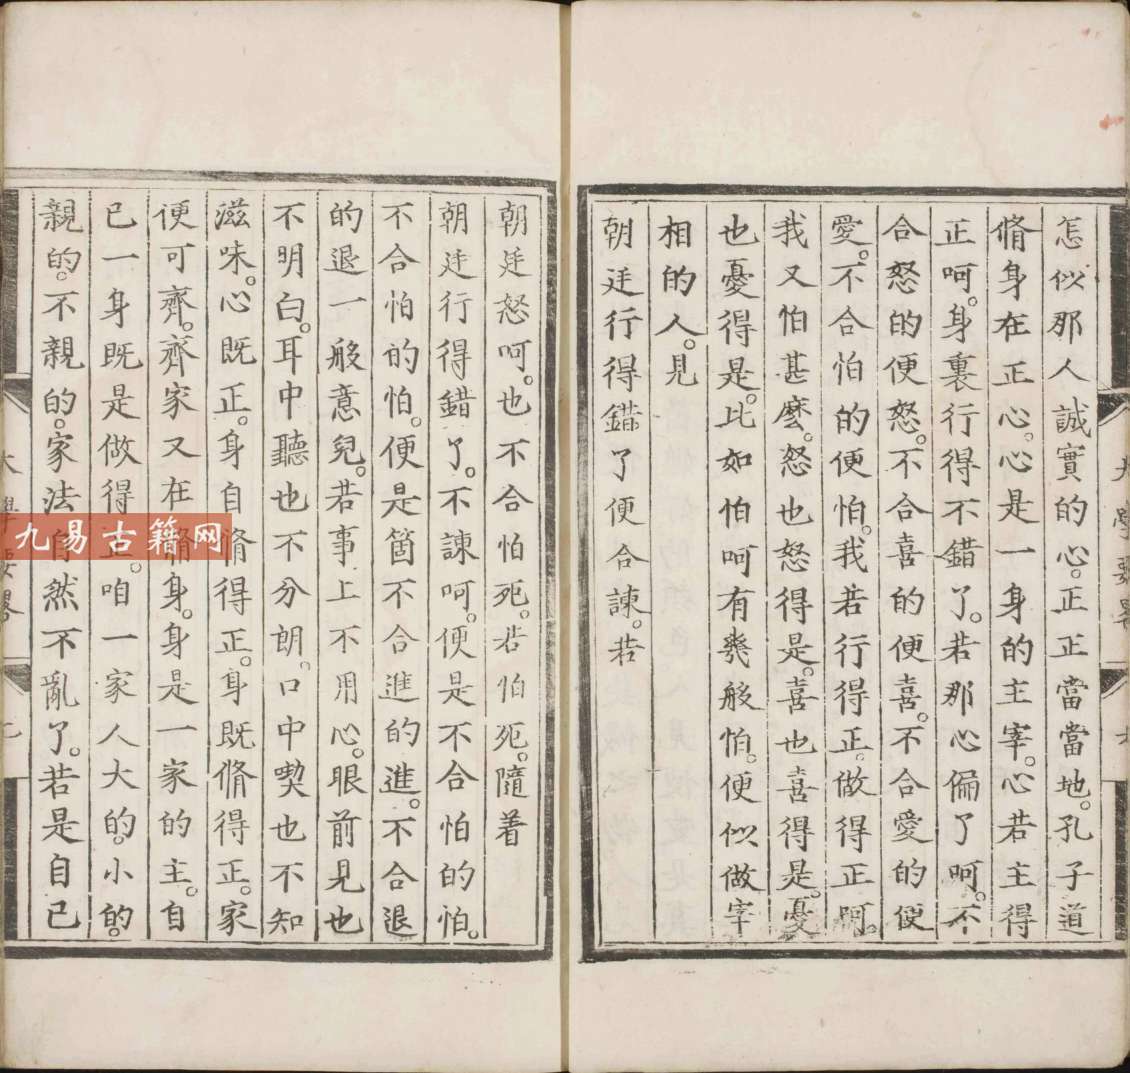 怎似那人誠實的心。正正當當地。孔子道
脩身在正心。心是一身的主宰。心若主得
正呵。身裏行得不錯了。若那心偏了呵。不
合怒的便怒。不合喜的便喜。不合愛的便
愛。不合怕的便怕。我若行得正。做得正呵。
我又怕甚麽。怒也怒得是。喜也喜得是。憂
也憂得是。比如怕呵有幾般怕。便似做宰
相的人。見
朝廷行得錯了便合諫。若
朝廷怒呵。也不合怕死。若怕死。隨着
朝廷行得錯了。不諫呵。便是不合怕的怕。
不合怕的怕。便是箇不合進的進。不合退
的退一般意兒。若事上不用心。眼前見也
不明白。耳中聽也不分朗。口中喫也不知
滋味。心既正。身自脩得正。身既脩得正。家
便可齊。齊家又在脩身。身是一家的主。自
已一身既是做得正。咱一家人大的。小的。
親的。不親的。家法自然不亂了。若是自已
大學要畧
七
九易古籍网